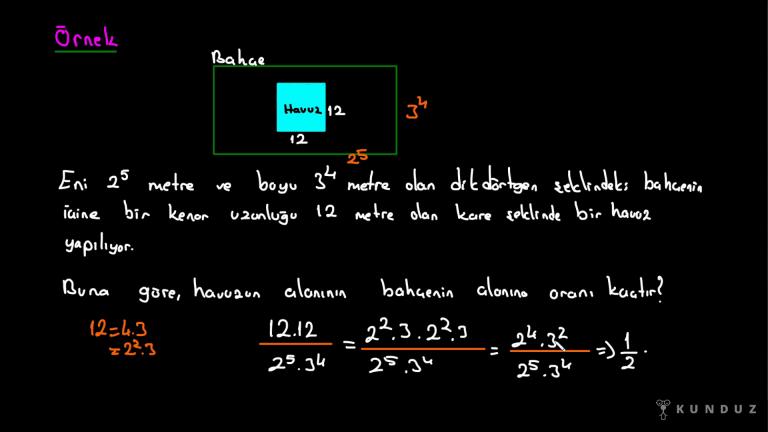 Örnek
Bahçe
Havuz 12
12
3⁴
2⁵
Eni 2⁵ metre ve boyu 3⁴ metre olan dikdörtgen şeklindeki bahçenin
içine bir kenar uzunluğu 12 metre olan kare şeklinde bir havuz
yapılıyor.
Buna göre, havuzun alanının bahçenin alanına oranı kaçtır?
12=4.3
=2².3
12.12 / 2⁵.3⁴ = 2².3.2².3 / 2⁵.3⁴ = 2⁴.3² / 2⁵.3⁴ => 1/2 .
KUNDUZ